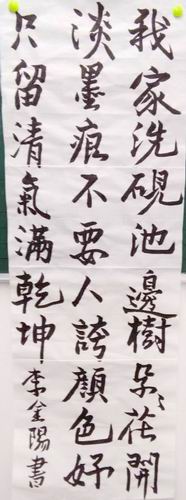 我家洗硯池邊樹朵々花開
淡墨痕不要人誇顏色好
只留清氣滿乾坤李金陽書